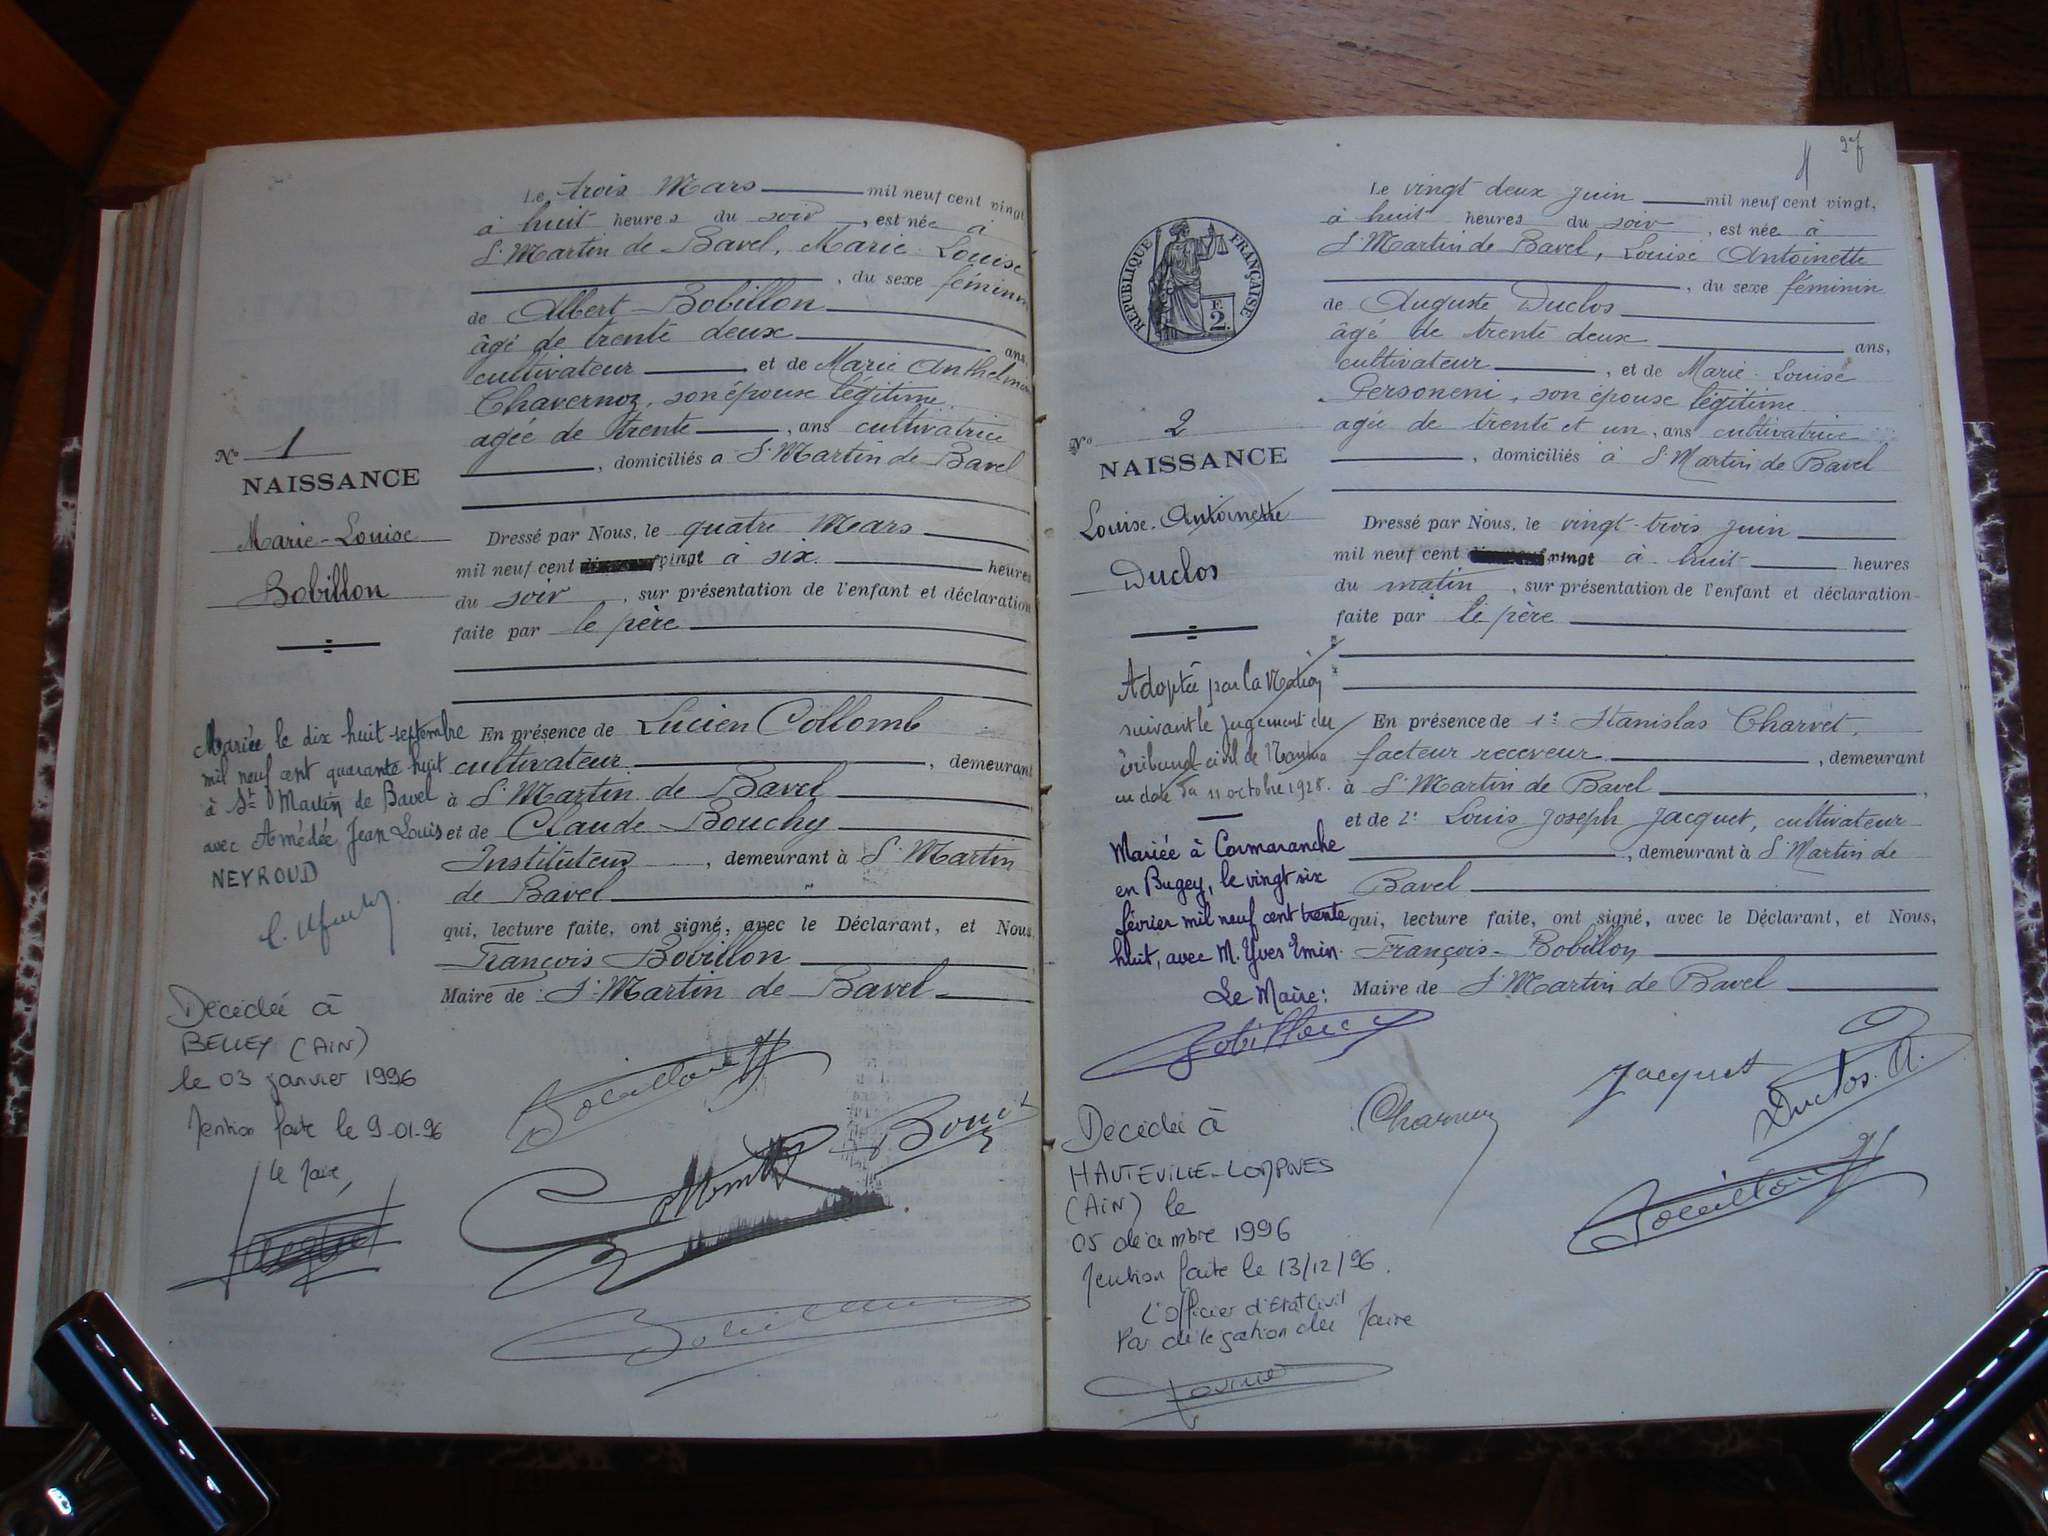 Le trois Mars mil neuf cent vingt
à huit heures du soir, est née à
St Martin de Bavel, Marie-Louise
, du sexe féminin
de Albert Bobillon
âgé de trente deux ans,
cultivateur et de Marie Anthelmine
Chavernoz, son épouse légitime
agée de trente, ans cultivatrice
, domiciliés a St Martin de Bavel
No 1
NAISSANCE
Marie-Louise
Bobillon
Dressé par Nous, le quatre Mars
mil neuf cent vingt à six heures
du soir, sur présentation de l'enfant et déclaration
faite par le père
En présence de Lucien Collomb
cultivateur, demeurant
à St Martin de Bavel,
et de Claude Bouchy
Instituteur, demeurant à St Martin
de Bavel
qui, lecture faite, ont signé, avec le Déclarant, et Nous,
François Bobillon
Maire de St Martin de Bavel
Mariée le dix huit septembre
mil neuf cent quarante huit
à St Martin de Bavel
avec Amédée Jean Louis
NEYROUD
Décédée à
BELLEY (AIN)
le 03 janvier 1996
Mention faite le 9-01-96
Le Maire,
Bobillon
Bouchy
Bobillon
27
Le vingt deux juin mil neuf cent vingt,
à huit heures du soir, est née à
St Martin de Bavel, Louise Antoinette
, du sexe féminin
de Auguste Duclos
âgé de trente deux ans,
cultivateur, et de Marie-Louise
Personeni, son épouse légitime
agée de trente et un, ans cultivatrice
, domiciliés à St Martin de Bavel
REPUBLIQUE FRANÇAISE
F.
2.
No 2
NAISSANCE
Louise-Antoinette
Duclos
Dressé par Nous, le vingt-trois juin
mil neuf cent vingt à huit heures
du matin, sur présentation de l'enfant et déclaration
faite par le père
En présence de 1° Stanislas Charvet,
facteur receveur, demeurant
à St Martin de Bavel,
et de 2° Louis Joseph Jacquet, cultivateur
, demeurant à St Martin de
Bavel
qui, lecture faite, ont signé, avec le Déclarant, et Nous,
François-Bobillon
Maire de St Martin de Bavel
Adoptée par la Nation
suivant le jugement du
tribunal civil de Nantua
en date du 11 octobre 1928.
Mariée à Cormaranche
en Bugey, le vingt six
février mil neuf cent trente
huit, avec M. Yves Emin.
Le Maire:
Bobillon
Jacquet
Duclos. A.
Charvet
Bobillon
Décédée à
HAUTEVILLE-LOMPNES
(AIN) le
05 décembre 1996
Mention faite le 13/12/96.
L'Officier d'Etat Civil
Par délégation du Maire